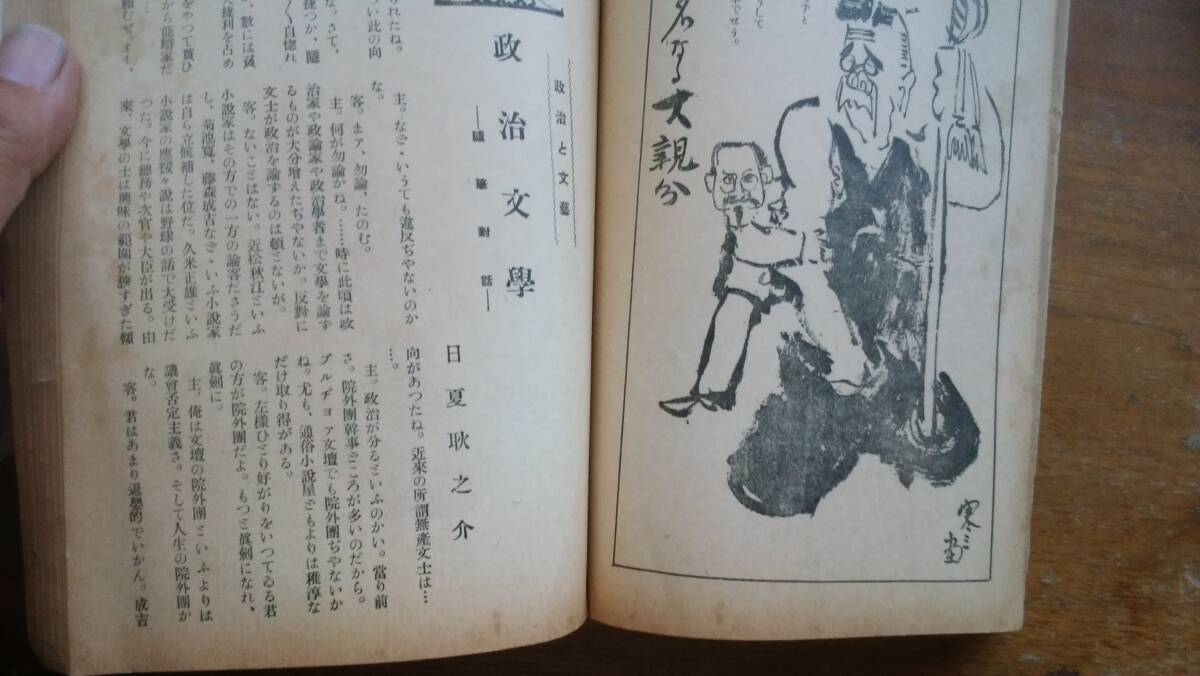 うして
子と
でせう。
名なる大親分
寒三畫
られたね。
つい此の向
な。さて、
捷つか、隨
く自惚れ
、數には貧
大捷利を占め
をやつて貰ひ
から能辯家だ
賴むぜ。オイ、
政治と文藝
政治文學
――議論對話――
日夏耿之介
主。なさ・いうても違反ぢやないのか
な。
客。まア、勿論、たのむ。
主。何が勿論かね。……時に此頃は政
治家や政論家や政治學者まで文學を論す
るものが大分増えたぢやないか。反對に
文士が政治を論するのは頓とないが。
客。ないことはない。近松秋江といふ
小說家はその方での一方の論客ださうだ
し、菊池寬、藤森成吉なさ・いふ小說家
は自ら立候補した位だ。久米正雄といふ
小說家の應援々說は野球の話で大受けだ
つた。今に總務や次官や大臣が出る。由
來、文學の士は興味の範圍が狹すぎた傾
向があつたね。近來の所謂無產文士は…
…。
主。政治が分るといふのかい。當り前
さ。院外團幹事どころが多いのだから。
ブルヂョア文壇でも院外團ぢやないか
ね。尤も、通俗小說屋どもよりは稚淳な
だけ取り得がある。
客。左樣ひとり好がりをいつてる君
の方が院外團だよ。もつと眞劍になれ、
眞劍に。
主。俺は文壇の院外團といふよりは
議會否定主義さ。そして人生の院外團か
な。
客。君はあまり退嬰的でいかん。成吉